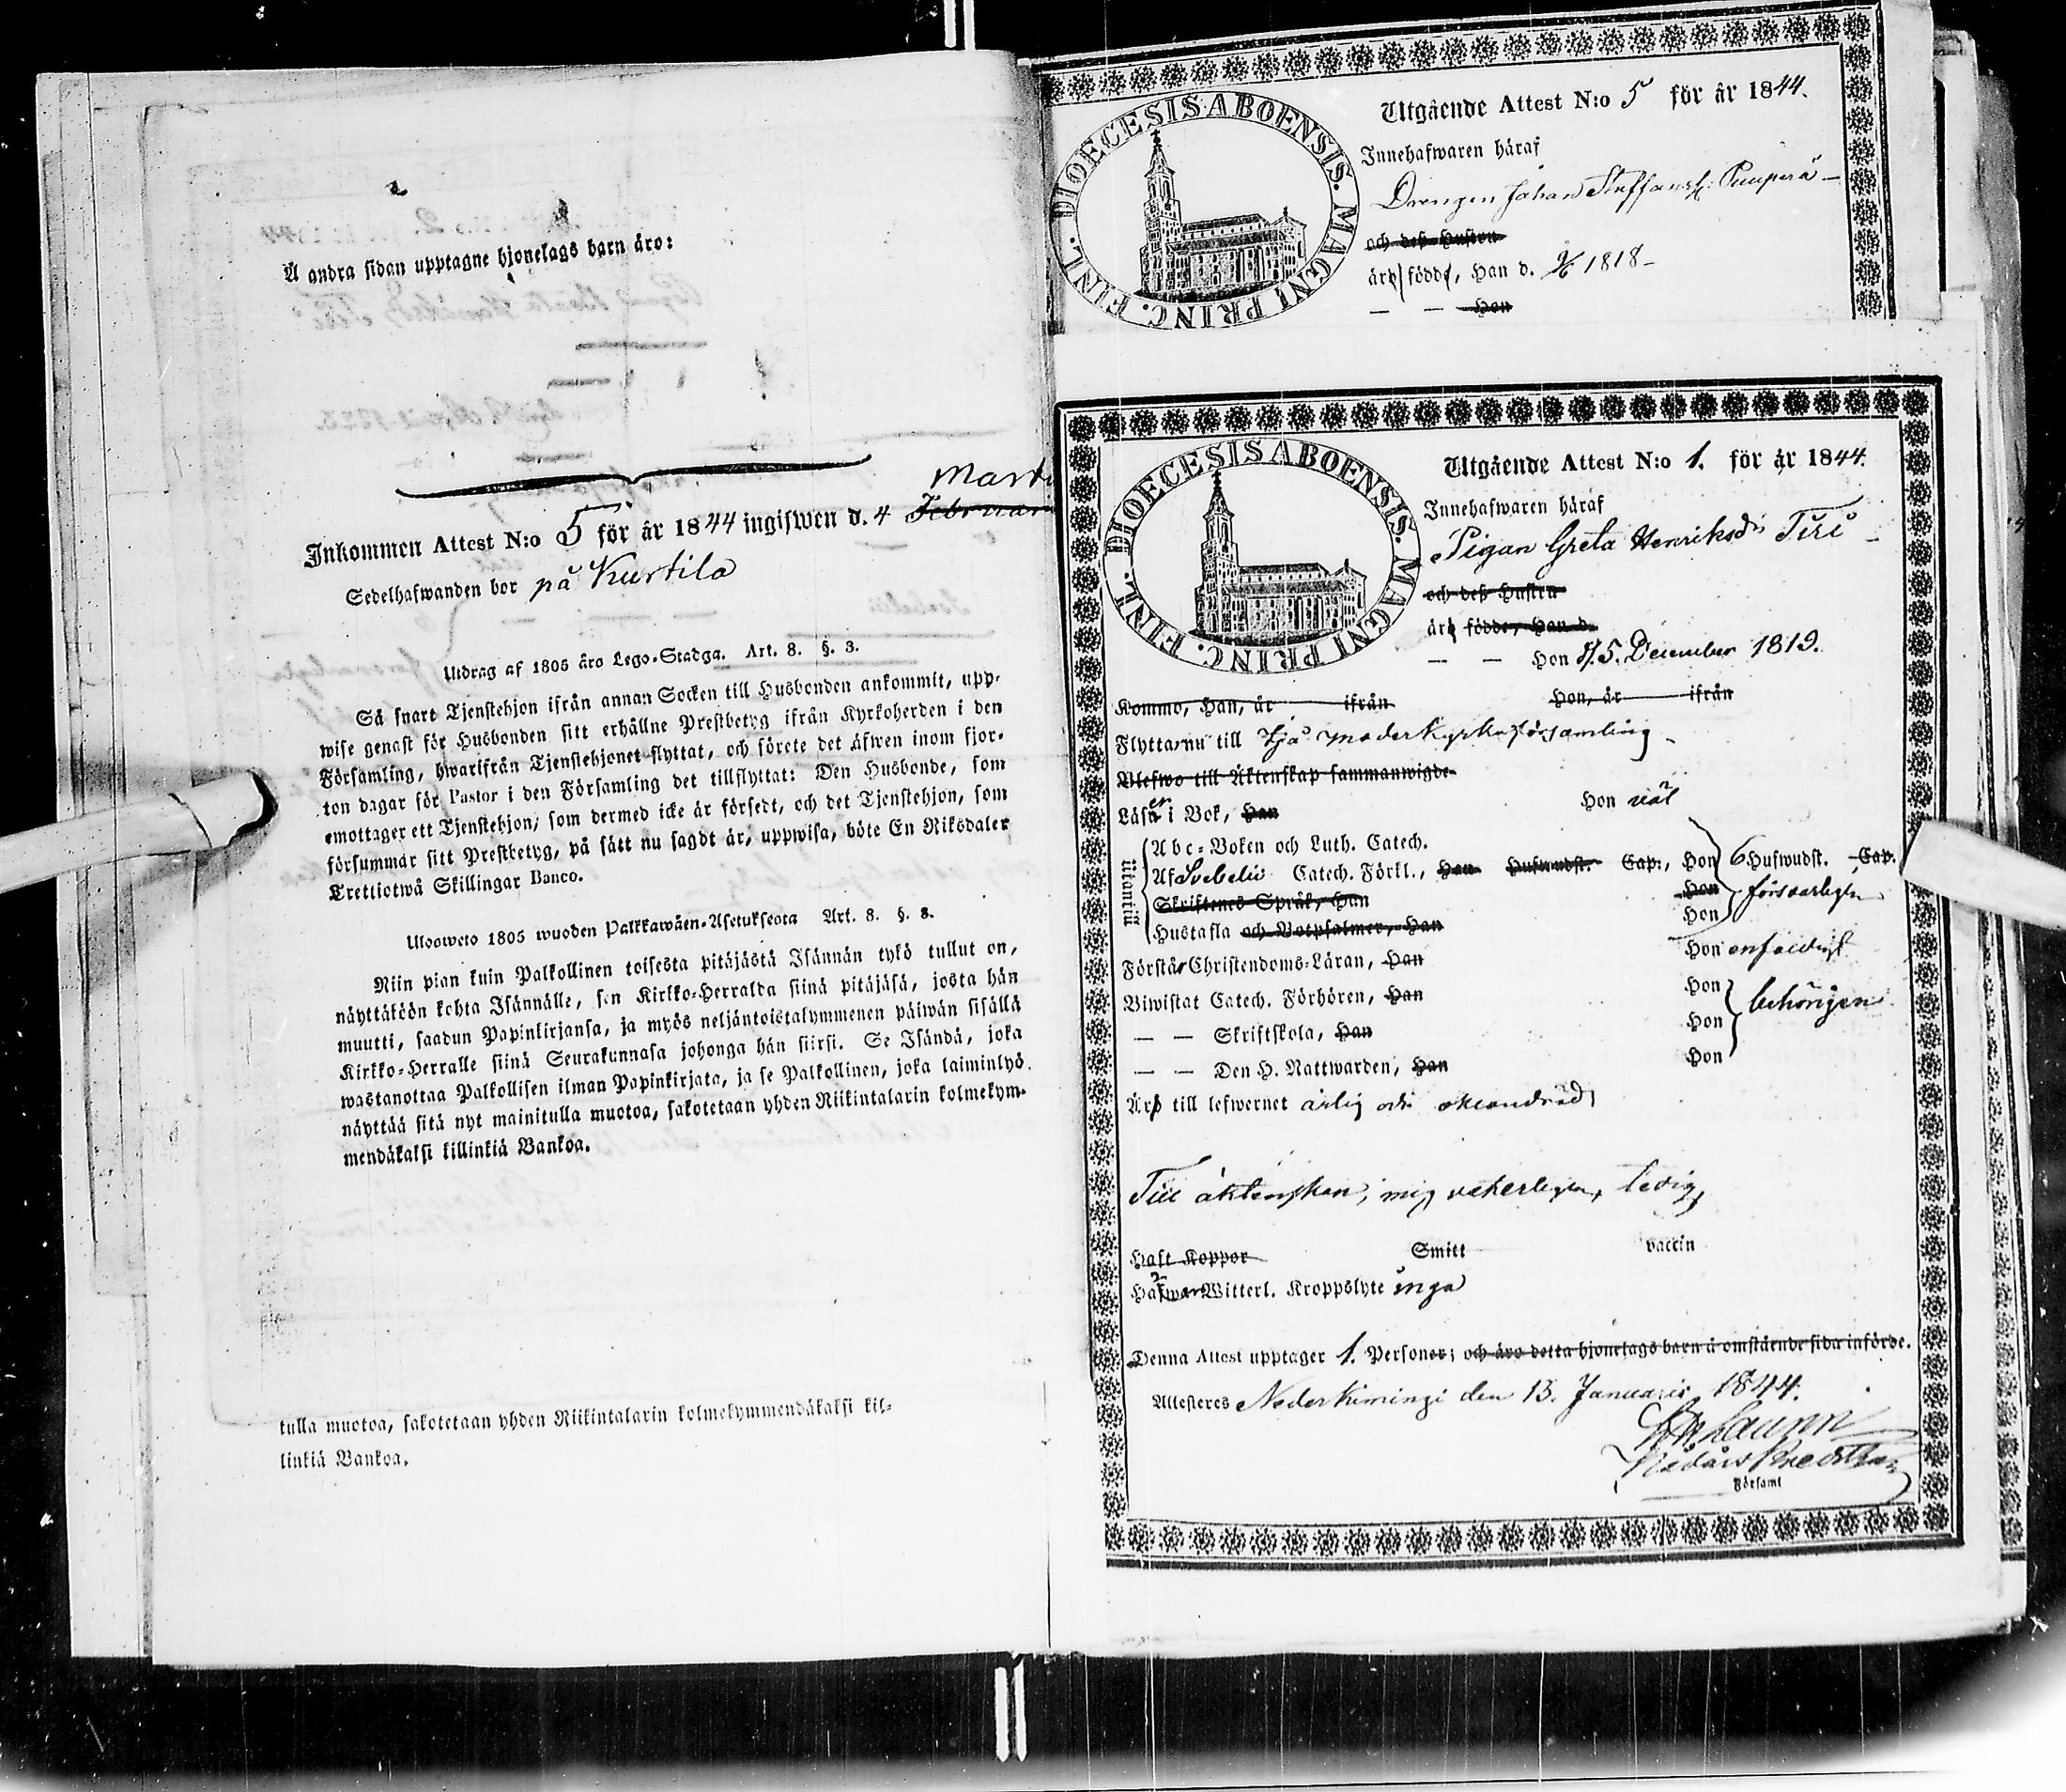 Å andra sidan upptagne hjonelags barn äro:
Martii
Inkommen Attest N:o 5 för år 1844 ingifwen d. 4 Februari
Sedelhafwanden bor på Kurtila
Utdrag af 1805 års Lego-Stadga. Art. 8. §. 3.
Så snart Tjenstehjon ifrån annan Socken till Husbonden ankommit, upp-
wise genast för Husbonden sitt erhållne Prestbetyg ifrån Kyrkoherden i den
Församling, hwarifrån Tjenstehjonet flyttat, och förete det äfwen inom fjor-
ton dagar för Pastor i den Församling det tillflyttat: Den Husbonde, som
emottager ett Tjenstehjon, som dermed icke är försedt, och det Tjenstehjon, som
försummar sitt Prestbetyg, på sätt nu sagdt är, uppwisa, böte En Riksdaler
Trettiotwå Skillingar Banco.
Ulosweto 1805 wuoden Palkkawäen-Asetuksesta Art. 8. §. 3.
Niin pian kuin Palkollinen toisesta pitäjästä Isännän tykö tullut on,
näyttäköön kohta Isännälle, sen Kirkko-Herralda siinä pitäjäsä, josta hän
muutti, saadun Papinkirjansa, ja myös neljäntoistakymmenen päiwän sisällä
Kirkko-Herralle siinä Seurakunnasa johonga hän siirsi. Se Isändä, joka
wastanottaa Palkollisen ilman Papinkirjata, ja se Palkollinen, joka laiminlyö
näyttää sitä nyt mainitulla muotoa, sakotetaan yhden Riikintalarin kolmekym-
mendäkaksi killinkiä Bankoa.
tulla muotoa, sakotetaan yhden Riikintalarin kolmekymmendäkaksi kil-
linkiä Bankoa.
DIOECESIS ABOENSIS. MAGNI PRINC. FINL.
Utgående Attest N:o 5 för år 1844.
Innehafwaren häraf
Drengen Johan Staffanss. Pumperä
och deß Hustru
äro födde, Han d. 1818
— — Hon
DIOECESIS ABOENSIS. MAGNI PRINC. FINL.
Utgående Attest N:o 1. för år 1844.
Innehafwaren häraf
Pigan Greta Henriksdr Tiri
och deß Hustru
äro födde, Han d.
— — Hon d. 5. December 1819.
Kommo, Han, år ifrån Hon, år ifrån
Flytta nu till Ijo moderkyrkoförsamling
Blefwo till Äktenskap sammanwigde
Läser i Bok, Han Hon väl
Utantill
Abc-Boken och Luth. Catech.
Af Svebelii Catech. Förkl., Han Hufwudst. Cap., Hon 6 Hufwudst. Cap.
Skriftenes Språk, Han Hon försvarligen
Hustafla och Botpsalmer, Han Hon
Förstår Christendoms-Läran, Han Hon enfaldigt
Biwistat Catech. Förhören, Han Hon
— — Skriftskola, Han Hon behörigen
— — Den H. Nattwarden, Han Hon
Äro till lefwernet ärlig och oklandrad
Till äktenskap, mig veterligen, ledig,
Haft Koppor Smitt vaccin
Hafwer Witterl. Kroppslyte inga
Denna Attest upptager 1. Personer; och äro detta hjonelags barn å omstående sida införde.
Attesteres Nederkiminge den 13. Januarii 1844.
Församl